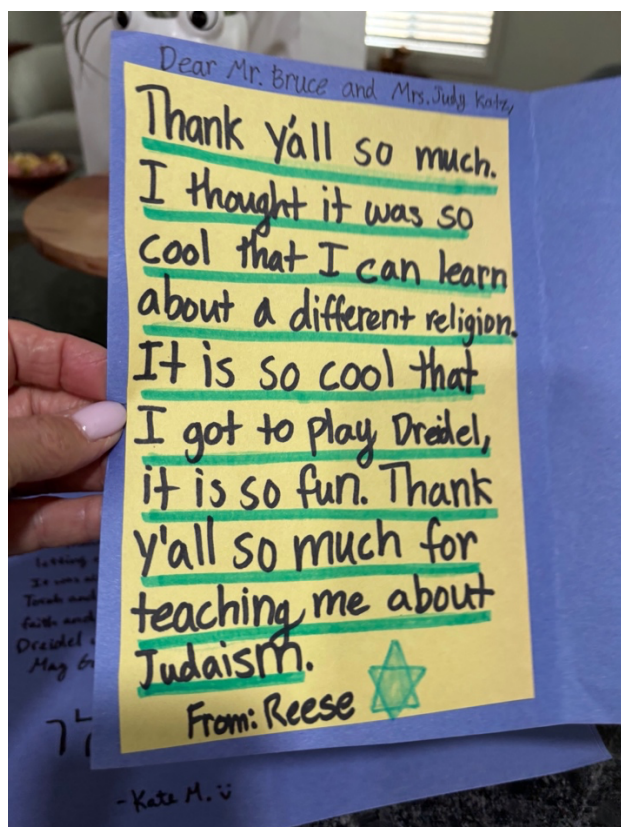 Dear Mr. Bruce and Mrs. Judy Katz,
Thank y'all so much.
I thought it was so
cool that I can learn
about a different religion.
It is so cool that
I got to play Dreidel,
it is so fun. Thank
y'all so much for
teaching me about
Judaism.
From: Reese
letting
It was
Torah and
faith and
Dreidel
May
-Kate M.